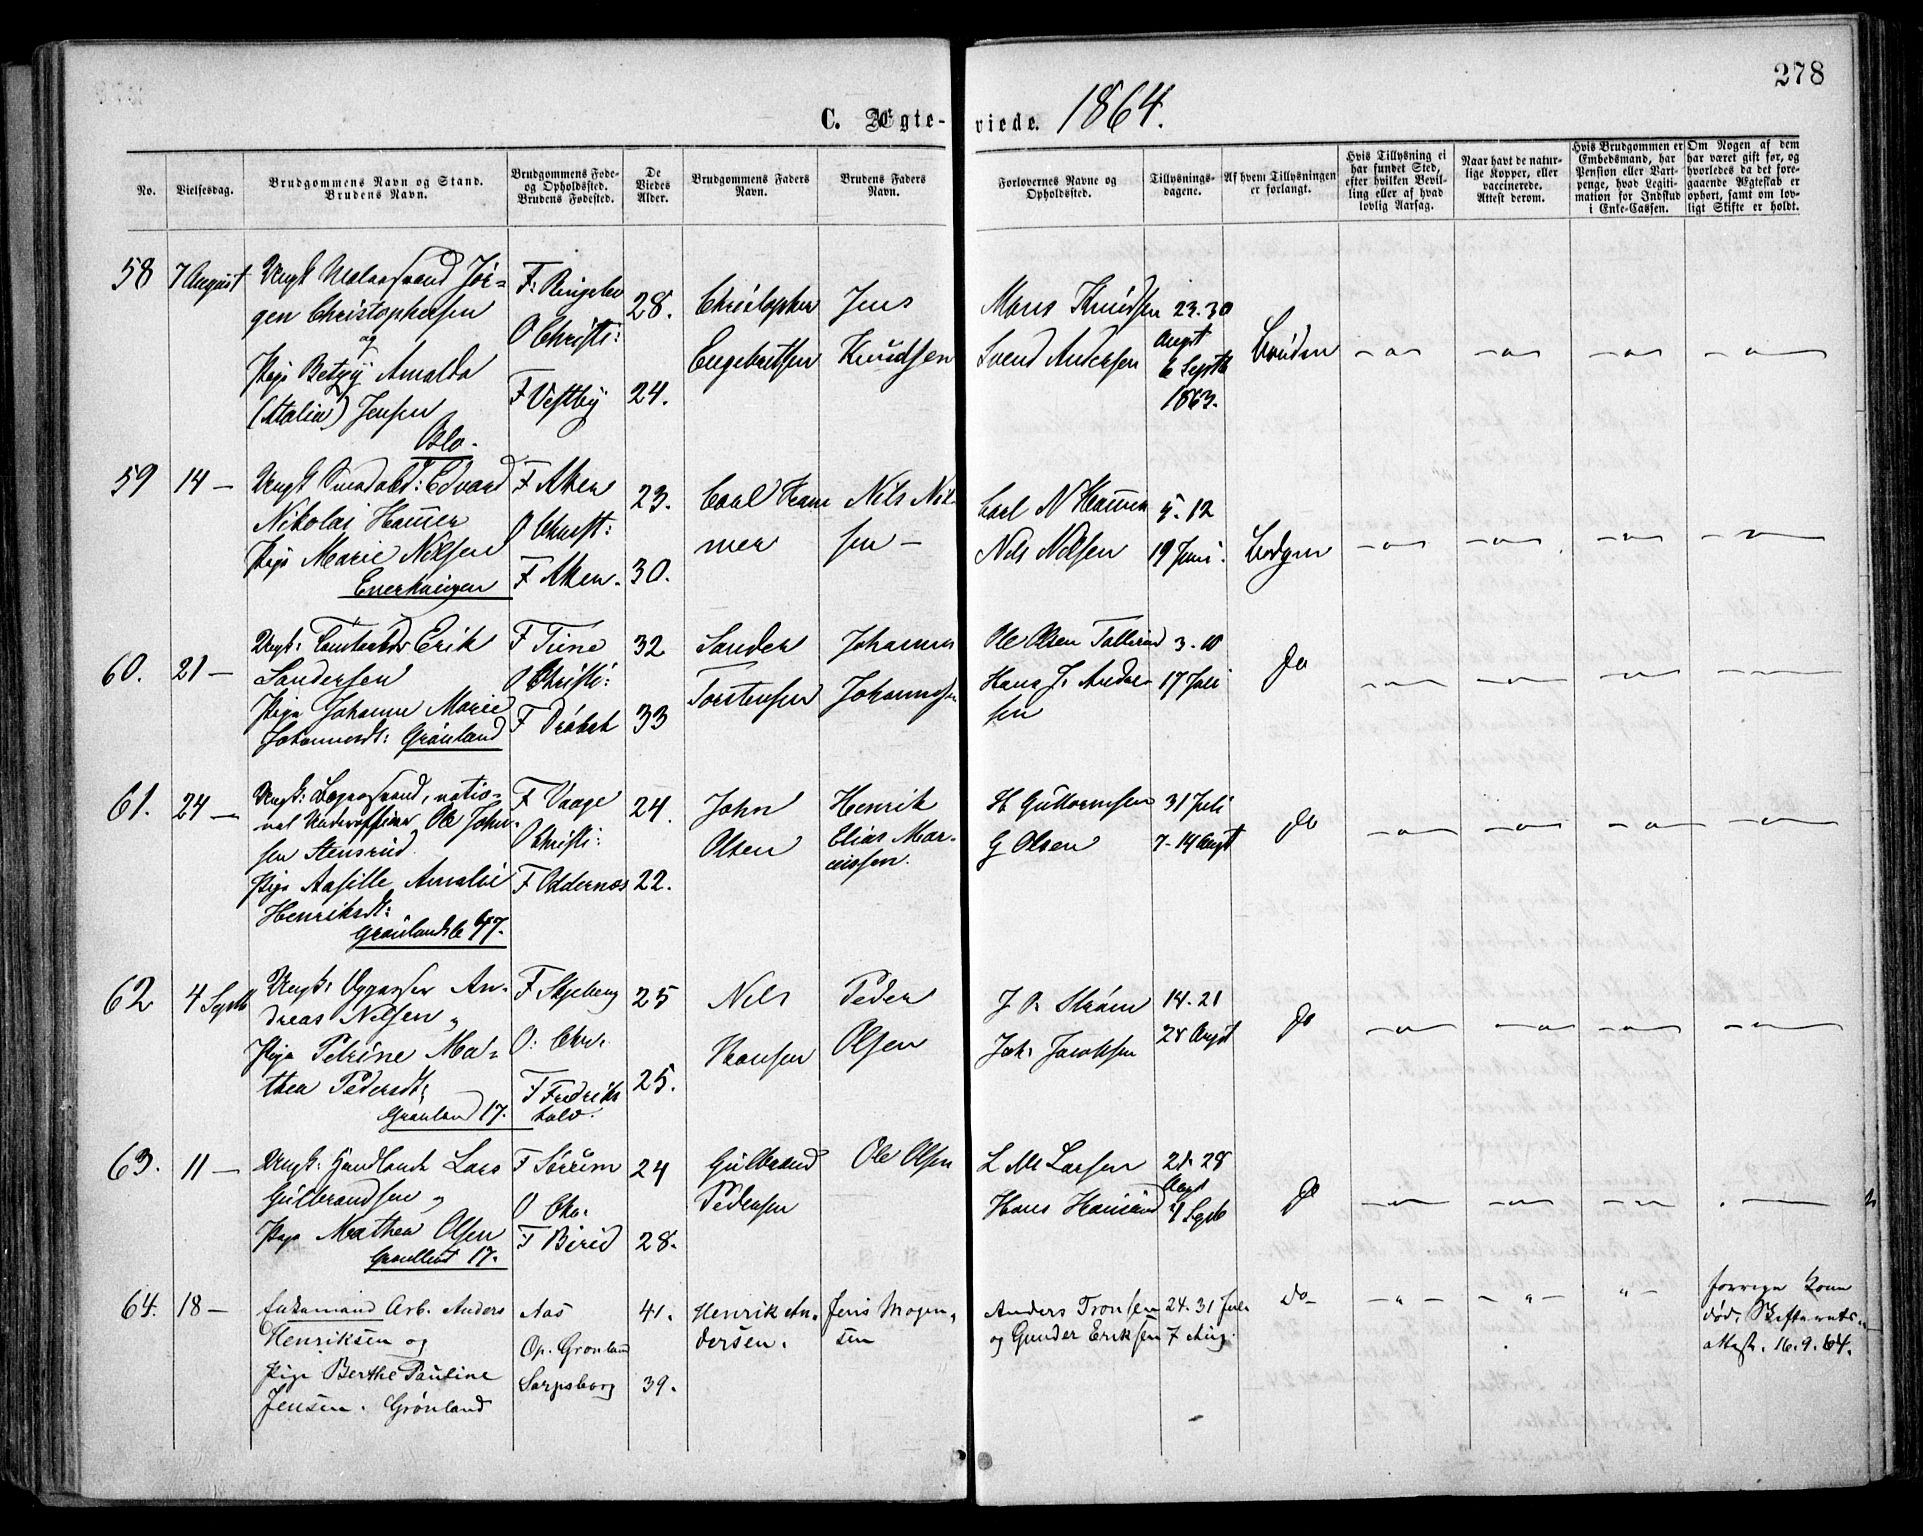 278
C. Ægte-
viede. 1864.
No.
Vielsesdag.
Brudgommens Navn og Stand.
Brudens Navn.
Brudgommens Føde-
og Opholdssted.
Brudens Fødested.
De
Viedes
Alder.
Brudgommens Faders
Navn.
Brudens Faders
Navn.
Forlovernes Navne og
Opholdssted.
Tillysnings-
dagene.
Af hvem Tillysningen
er forlangt.
Hvis Tillysning ei
har fundet Sted,
efter hvilken Bevil-
ling eller af hvad
lovlig Aarsag.
Naar havt de natur-
lige Kopper, eller
vaccinerede.
Attest derom.
Hvis Brudgommen er
Embedsmand, har
Pension eller Vart-
penge, hvad Legiti-
mation for Indskud
i Enke-Cassen.
Om Nogen af dem
har været gift før, og
hvorledes da det fore-
gaaende Ægteskab er
ophørt, samt om lov-
ligt Skifte er holdt.
58
7 August
Ungk Jør-
gen Christophersen
og
Pige Betzy Amalda
(Atalia) Jensen
Oslo.
F: Ringebo
O Christi:
F Vestby
28.
24.
Christopher
Engebretsen
Jens
Knudsen
Mons Knudsen
Svend Andersen
23. 30
Augst
6 Septb
1863.
Bruden
59
14 —
Ungk Edvard
Nikolai Hammer
Pige Marie Nilsen
Enerhaugen
F Aker
O Christ:
F Aker.
23.
30.
Carl Ham
mer
Nils Nil-
sen —
Carl N Hammer
Nils Nilsen
5. 12
19 Juni.
Brudgm
60.
21 —
Ungk: Erik
Sandersen
Pige Johanne Marie
Johannesdt: Grønland
F Tune
O Christi:
F Drøbak
32
33
Sander
Torstensen
Johannes
Johannesen
Ole Olsen
Hans J. Ander
sen
3. 10
17 Juli
Do
61.
24 —
Ungk: natio-
nal Underofficer Ole John-
sen Stensrud
Pige Amalie
Henriksdt:
Grønlandsle 47.
F Vaage
O Christi:
F Oddernes
24.
22.
John
Olsen
Henrik
Elias Mar-
cussen.
H Guttormsen
G Olsen
31 Juli
7- 14 Augt
Do
62
4 Septb
Ungk: An-
dreas Nilsen
Pige Petrine Ma-
thea Pedersdt:
Grønland 17.
F Skjeberg
O: Chr.
F Fredriks
hald.
25
25.
Nils
Hansen
Peder
Olsen
J P Strøm
Joh. Jacobsen
14. 21
28 Augt
Do
63.
11 —
Ungk: Lars
Gulbrandsen
Pige Mathea Olsen
Grønland 17.
F Sørum
O Chr.
F Birid
24
28.
Gulbrand
Pedersen
Ole Olsen
L M Larsen
Hans
21. 28
Augt
4 Septb
Do
64.
18 —
Enkemand Arb. Anders
Henriksen og
Pige Berthe Pauline
Jensen. Grønland
Aas
Op. Grønland
Sarpsborg
41.
39.
Henrik An-
dersen.
Jens Mogen-
sen
Anders Tronsen
og Gunder Eriksen
24. 31 Juli
7 Aug.
Do
forrige Kone
død. Skifterets
attest. 16.9.64.